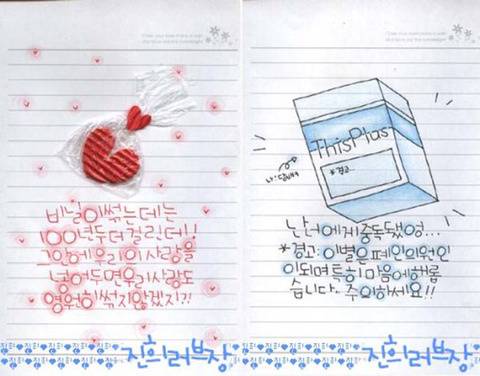 비닐이썪는데는
100년두더걸린데!!
그안에우리의사랑을
넣어두면우리사랑도
영원히썪지않겠지?!
진희러브장
ThisPlus
*경고..
난너에게중독됐엉...
*경고:이별은폐인의원인
이되며특히마음에해롭
습니다. 주의하세요!!
진희러브장